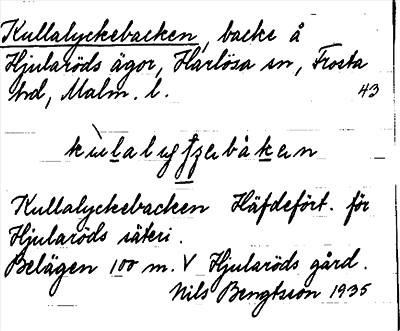 Kullalyckebacken, backe å
Hjularöds ägor, Harlösa sn, Frosta
hd, Malm. l. 43
Kullalyckebacken Häfdefört. för
Hjularöds säteri.
Belägen 100 m. V Hjularöds gård.
Nils Bengtsson 1935